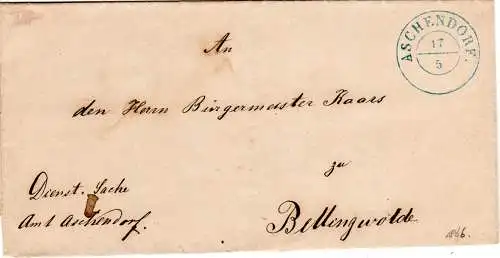 An
ASCHENDORF.
17
5
den Herrn Bürgermeister Kaars
zu
Dienst. Sache
Amt Aschendorf.
Bellingwolde.
1846.